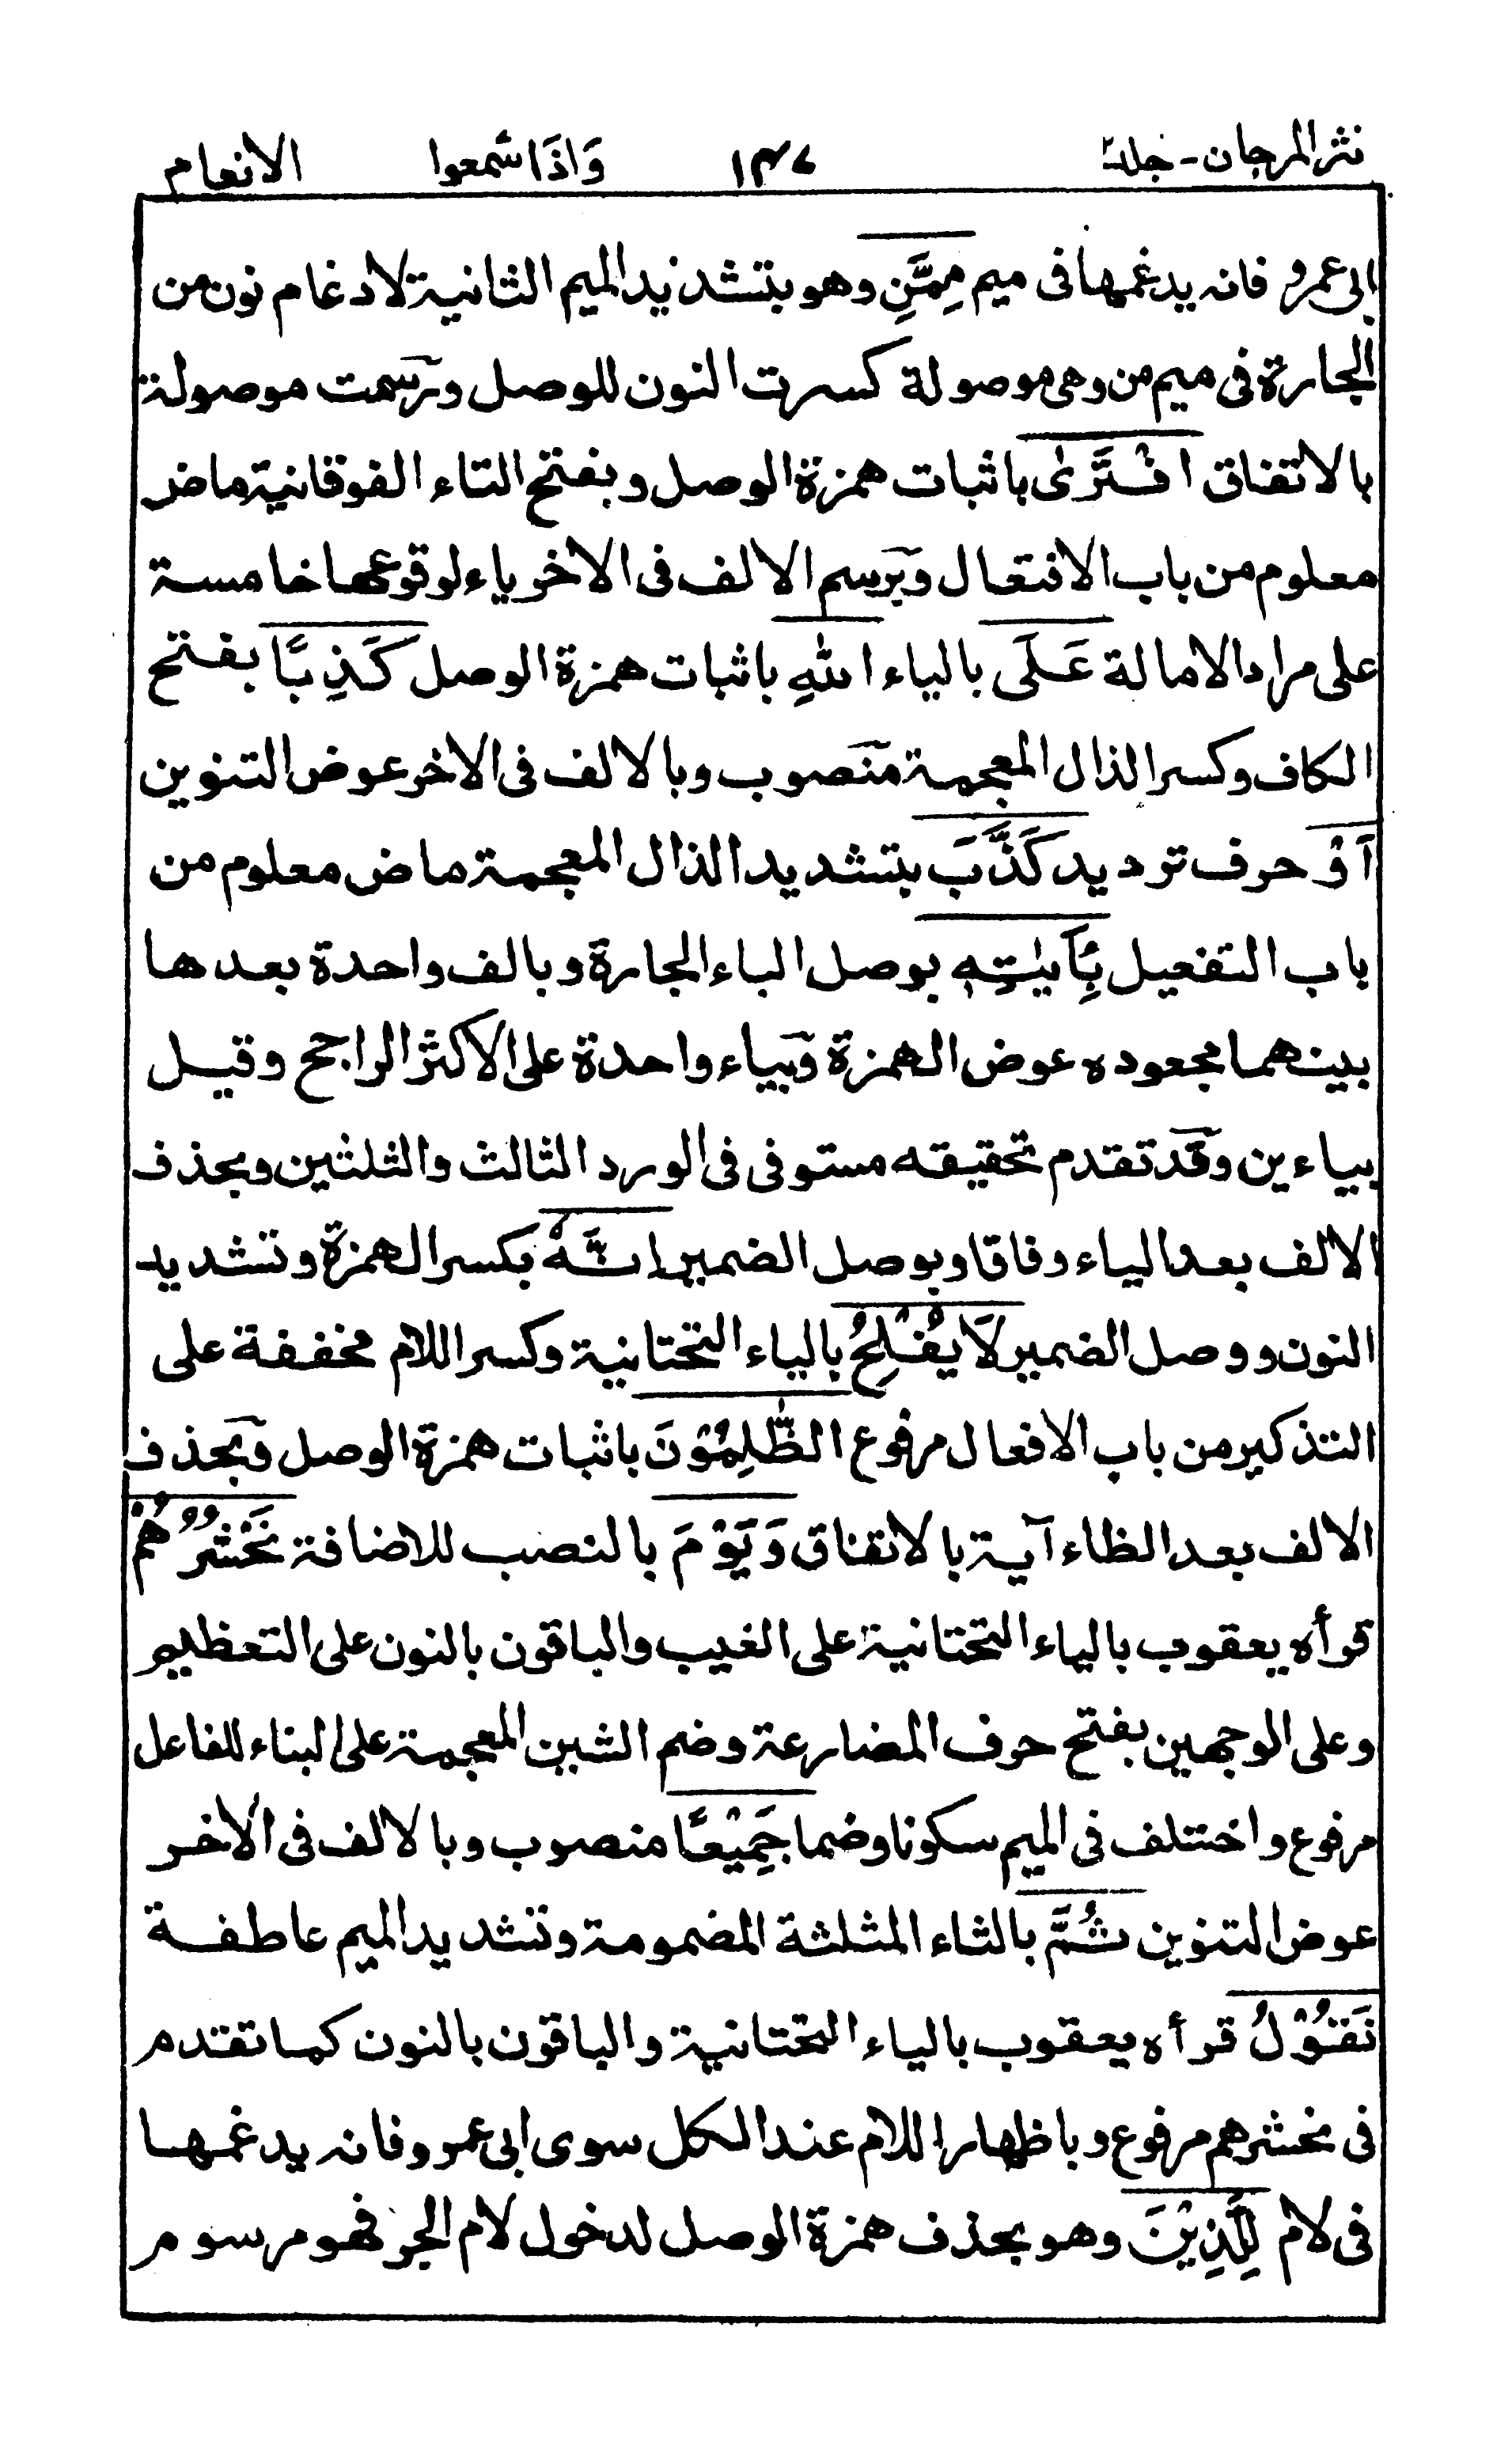 نثر المرجان - جلد ٢ ١٣٧ وَاذَا سَمعوا الانعام
ابی عمرو فانه يدغمها فی ميم مِمَّنِ وهو بتشديد الميم الثانية لادغام نون من
الجارة فی ميم من وهی موصولة كسرت النون للوصل ورسمت موصولة
بالاتفاق افْتَرٰى باثبات همزة الوصل وبفتح التاء الفوقانية ماض
معلوم من باب الافتعال وبرسم الالف فی الاخر ياء لوقوعها خامسة
علی مراد الامالة عَلَى بالياء اللهِ باثبات همزة الوصل كَذِبًا بفتح
الكاف وكسر الذال المعجمة منصوب وبالالف فی الاخر عوض التنوين
اَوْ حرف ترديد كَذَّبَ بتشديد الذال المعجمة ماض معلوم من
باب التفعيل بِاٰيٰتِهٖ بوصل الباء الجارة وبالف واحدة بعدها
بينهما مجعوده عوض الهمزة وبياء واحدة علی الاكثر الراجح وقيل
بياءين وقد تقدم تحقيقه مستوفی فی الورد الثالث والثلثين وبحذف
الالف بعد الياء وفاقا وبوصل الضمير اِنَّهٗ بكسر الهمزة وتشديد
النون ووصل الضمير لَا يُفْلِحُ بالياء التحتانية وكسر اللام مخففة علی
التذكير من باب الافعال مرفوع الظّٰلِمُوْنَ باثبات همزة الوصل وبحذف
الالف بعد الظاء آية بالاتفاق وَيَوْمَ بالنصب للاضافة نَحْشُرُهُمْ
قرأه يعقوب بالياء التحتانية علی الغيب والباقون بالنون علی التعظيم
وعلی الوجهين بفتح حرف المضارعة وضم الشين المعجمة علی البناء للفاعل
مرفوع واختلف فی الميم سكونا وضما جَمِيْعًا منصوب وبالالف فی الاخر
عوض التنوين ثُمَّ بالثاء المثلثة المضمومة وتشديد الميم عاطفة
نَقُوْلُ قرأه يعقوب بالياء التحتانية والباقون بالنون كما تقدم
فی نحشرهم مرفوع وباظهار اللام عند الكل سوی ابی عمرو فانه يدغمها
فی لام لِلَّذِيْنَ وهو بحذف همزة الوصل لدخول لام الجر فهو مرسوم